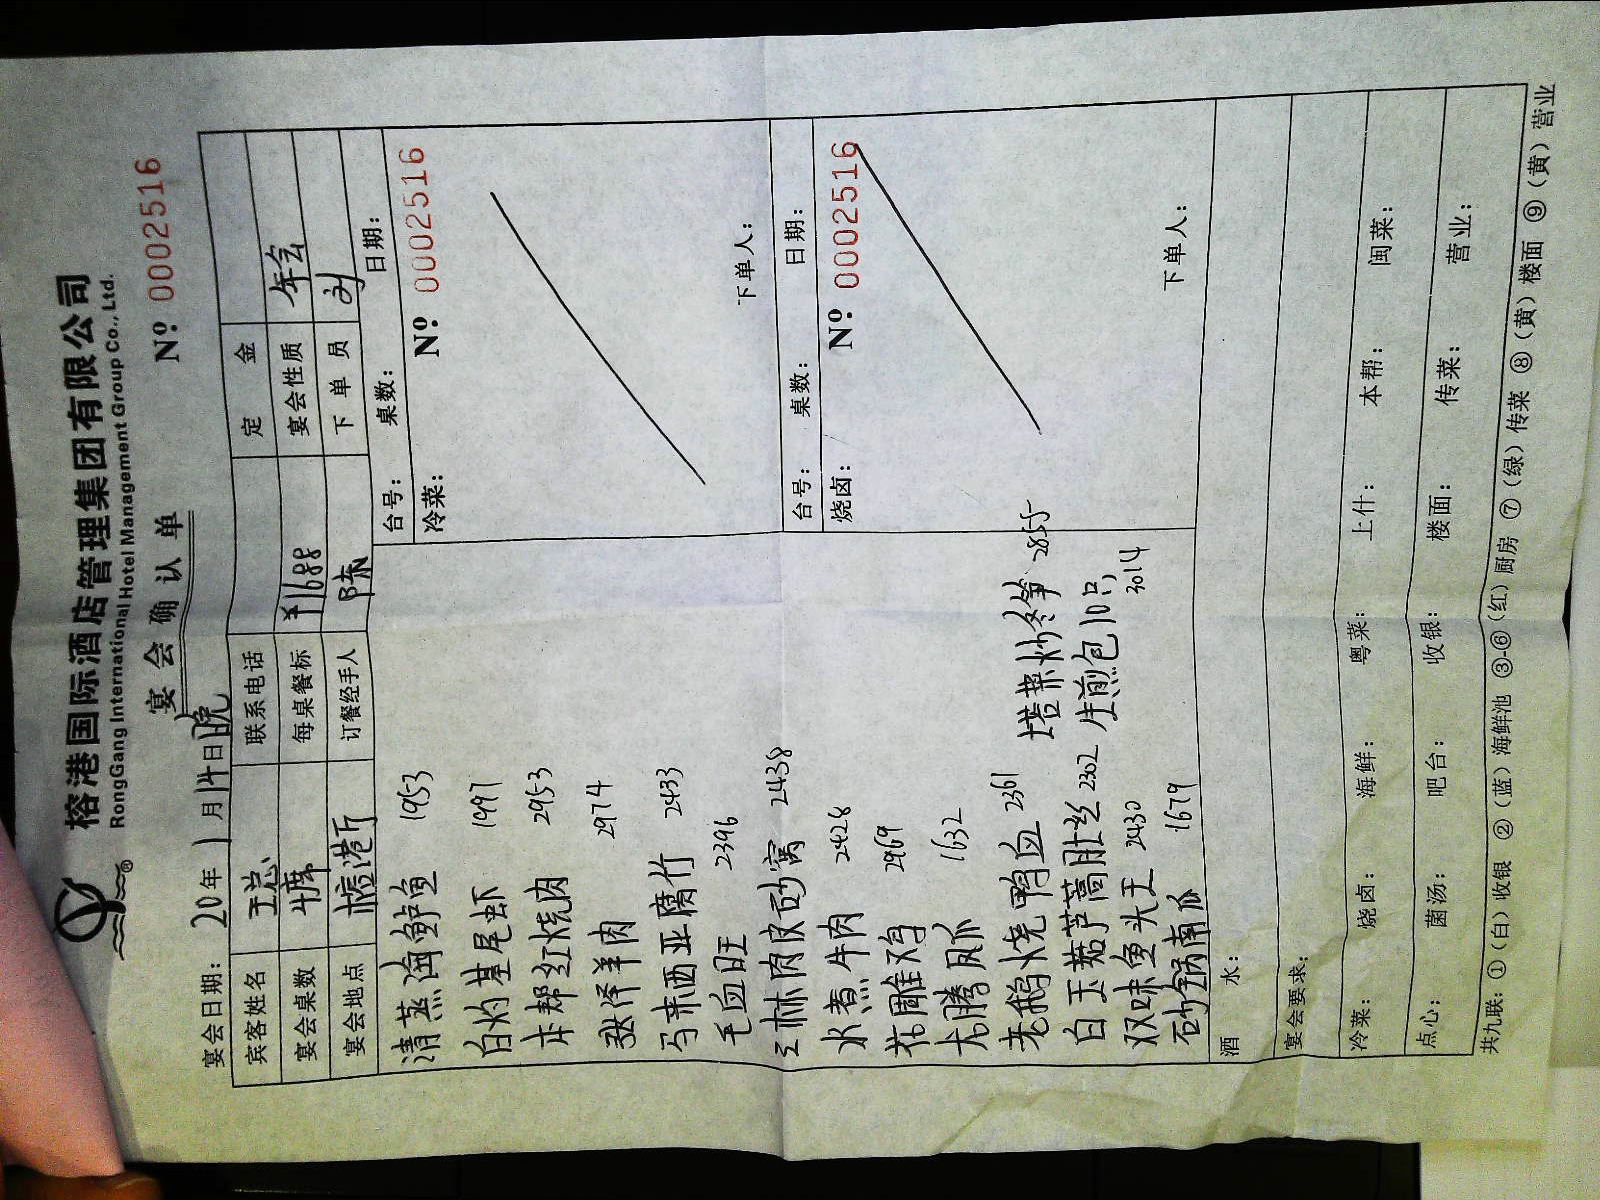 榕港国际酒店管理集团有限公司
RongGang International Hotel Management Group Co., Ltd.
宴会确认单
№ 0002516
宴会日期: 20 年 1 月 14 日 晚
宾客姓名 王总 联系电话 定金
宴会桌数 4席 每桌餐标 ¥1688 宴会性质 年会
宴会地点 檐港厅 订餐经手人 陈 下单员 刘
清蒸海鲈鱼 1953
白灼基尾虾 1997
本帮红烧肉 2953
羊肉 2974
马来西亚腐竹 2433
毛血旺 2396
三林肉皮砂窝 2438
水煮牛肉 2428
花雕鸡 2969
龙腾凤爪 1632
老鹅烧鸭血 2361
塔菜炒冬笋 2855
白玉菇芦蒿肚丝 2302
生煎包10只 3014
双味鱼头王 2430
砂锅南瓜 1679
台号: 桌数: 日期:
冷菜: № 0002516
下单人:
台号: 桌数: 日期:
烧卤: № 0002516
下单人:
酒水:
宴会要求:
冷菜: 烧卤: 海鲜: 粤菜: 上什: 本帮: 闽菜:
点心: 菌汤: 吧台: 收银: 楼面: 传菜: 营业:
共九联: ①(白)收银 ②(蓝)海鲜池 ③-⑥(红)厨房 ⑦(绿)传菜 ⑧(黄)楼面 ⑨(黄)营业